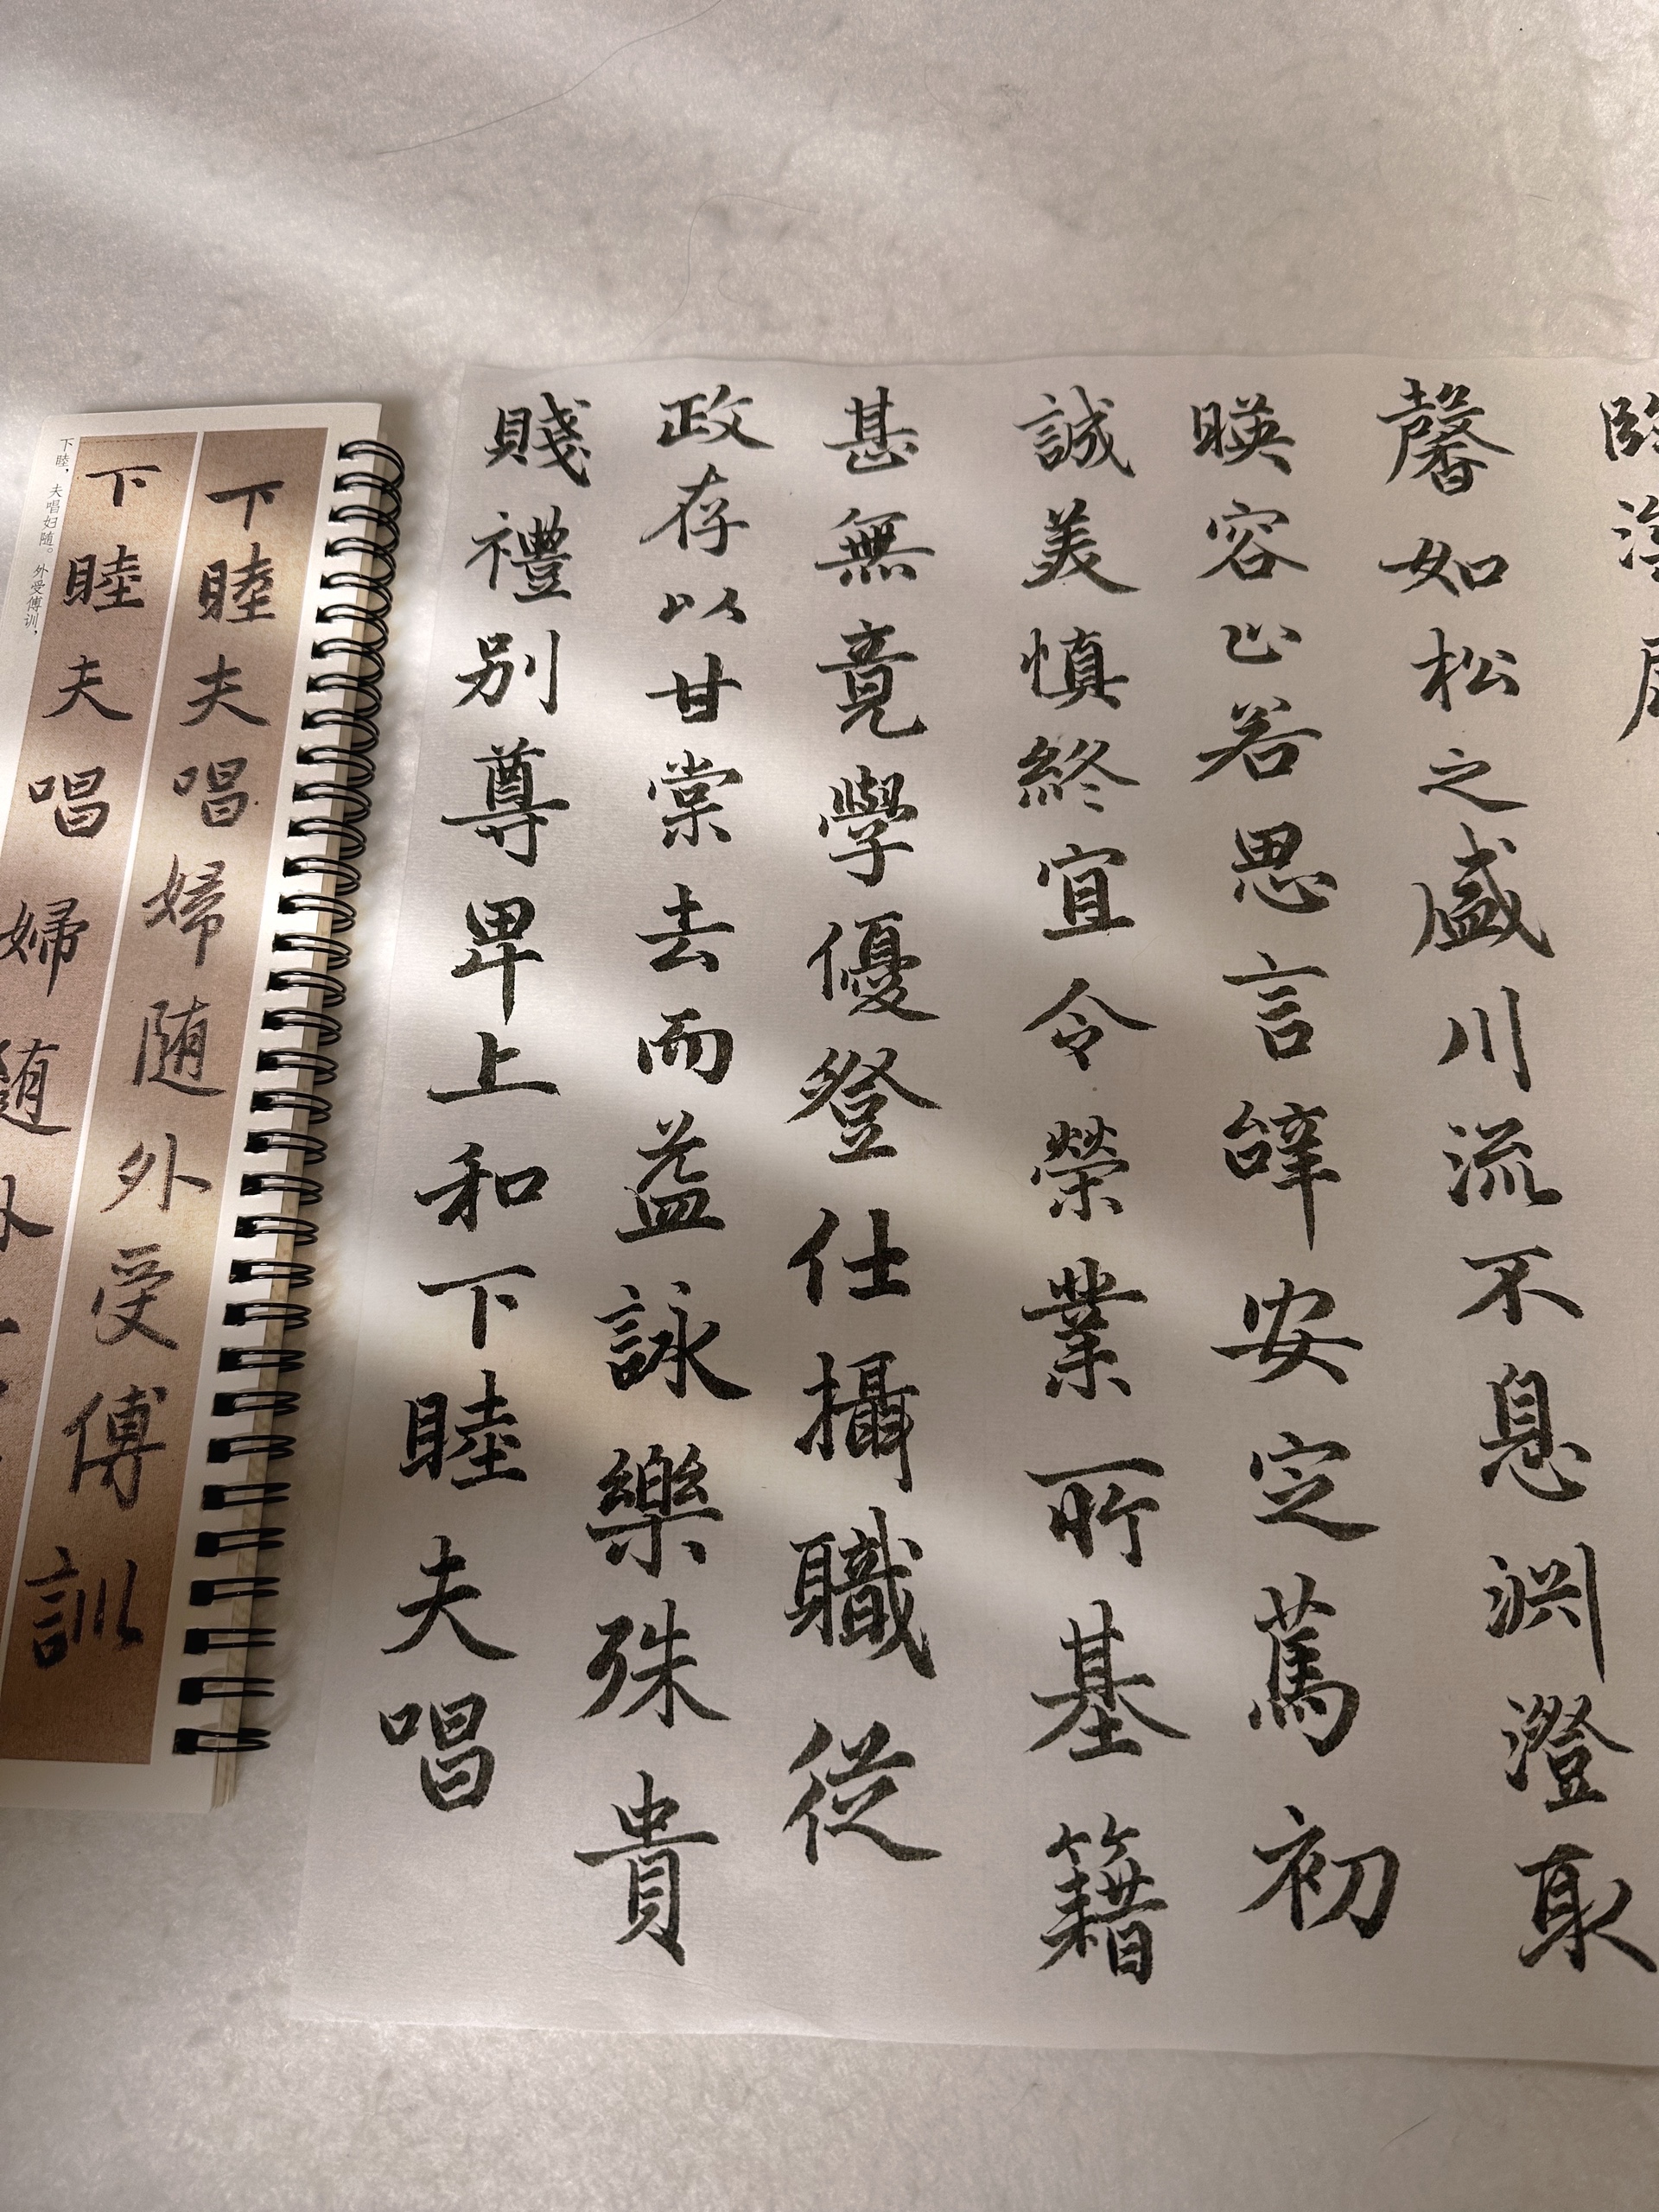 臨深履
馨如松之盛川流不息渊澄取
暎容止若思言辝安定篤初
誠美慎終宜令榮業所基籍
甚無竟學優登仕攝職從
政存以甘棠去而益詠樂殊貴
賤禮別尊卑上和下睦夫唱
下睦夫唱婦随外受傅訓
下睦夫唱婦随外
下睦，夫唱妇随。外受傅训，